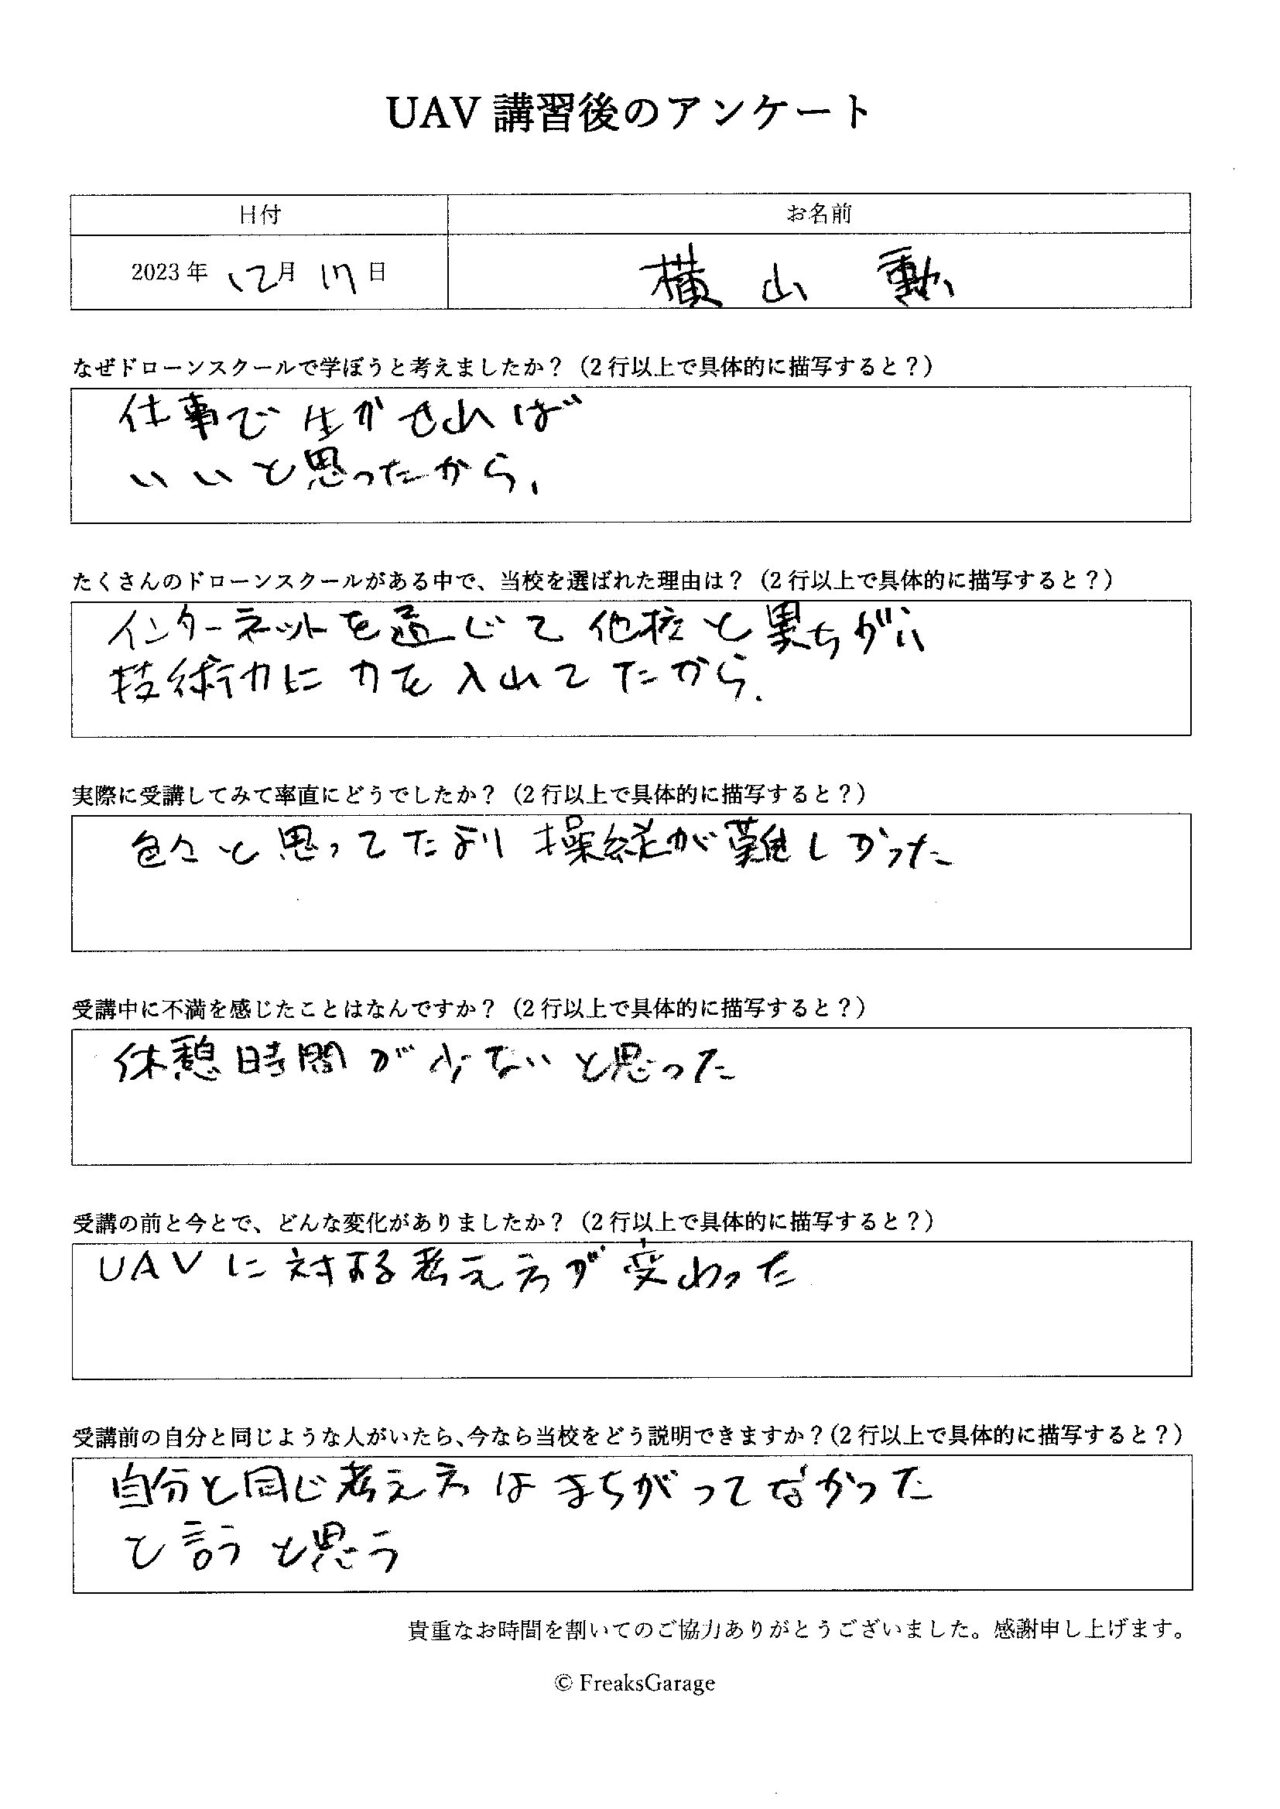 UAV 講習後のアンケート
日付
お名前
2023 年 12 月 17 日
横山 勲
なぜドローンスクールで学ぼうと考えましたか？（2 行以上で具体的に描写すると？）
仕事で生かせれば
いいと思ったから、
たくさんのドローンスクールがある中で、当校を選ばれた理由は？（2 行以上で具体的に描写すると？）
インターネットを通じて他校と異ちがい
技術力に力を入れてたから.
実際に受講してみて率直にどうでしたか？（2 行以上で具体的に描写すると？）
色々と思ってたより操縦が難しかった
受講中に不満を感じたことはなんですか？（2 行以上で具体的に描写すると？）
休憩時間が少ないと思った
受講の前と今とで、どんな変化がありましたか？（2 行以上で具体的に描写すると？）
UAVに対する考え方が変わった
受講前の自分と同じような人がいたら、今なら当校をどう説明できますか？（2 行以上で具体的に描写すると？）
自分と同じ考え方はまちがってなかった
と言うと思う
貴重なお時間を割いてのご協力ありがとうございました。感謝申し上げます。
© FreaksGarage